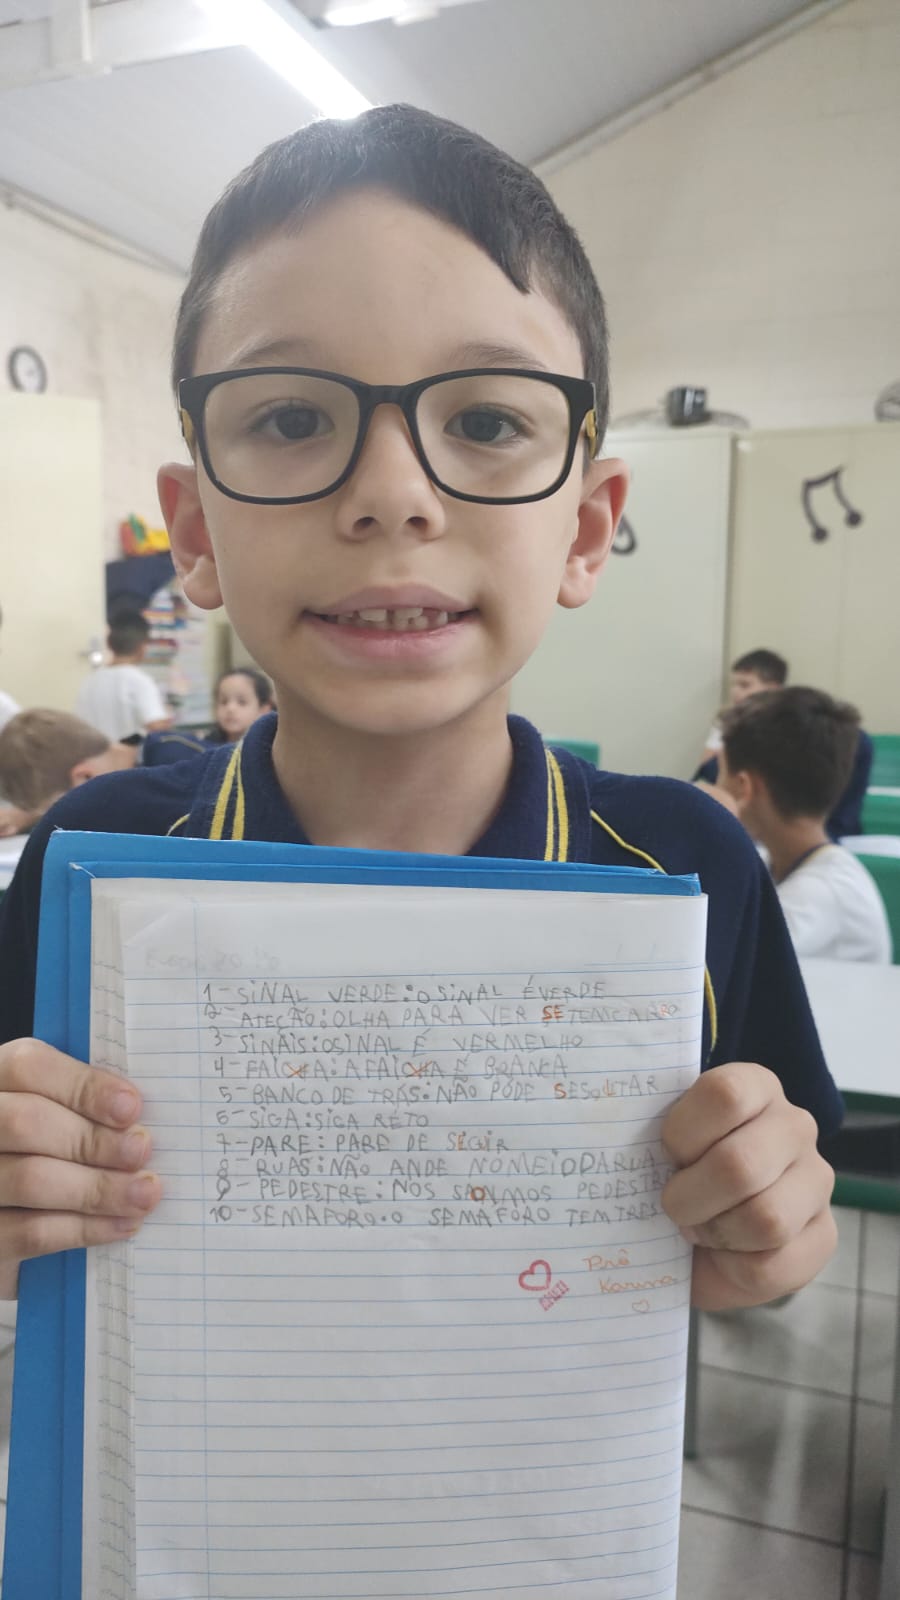 1-SINAL VERDE:O SINAL É VERDE
2-ATEÇÃO:OLHA PARA VER SE TEM CARRO
3-SINAIS:O SINAL É VERMELHO
4-FAIXA: A FAIXA É BRANCA
5-BANCO DE TRÁS:NÃO PODE SESQUETAR
6-SIGA:SIGA RÉTO
7-PARE: PARE DE SEGUIR
8-RUAS:NÃO ANDE NO MEIO DA RUA
9-PEDESTRE: NOS SOMOS PEDESTRE
10-SEMAFORO.O SEMAFORO TEM TRES
Prô
Karina